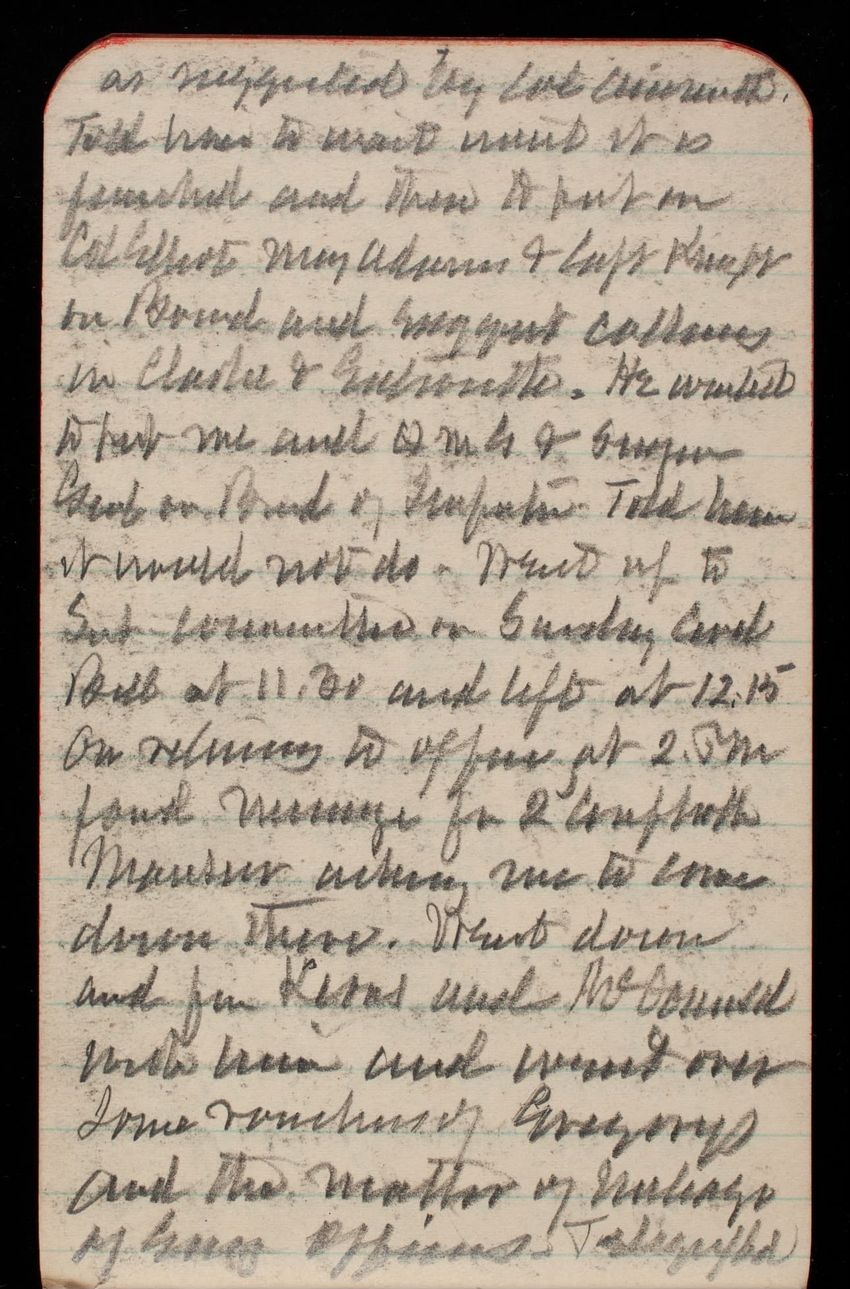 as suggested by Col Ainsworth.
Told him to wait until it is
finished and then to put on
Col Elliot Maj Adams & Capt Knapt
on Board and suggest
in &. He wanted
to put me and Q M G & Surgeon
Genl on Board of Told him
it would not do - Went up to
Sub committee on Sundry Civil
Bill at 11.30 and left at 12.15
On returning to office at 2. P M
found message fm 2 Comptroller
Mansur asking me to come
down there. Went down
and fm and McConnell
with him and went over
Some vouchers of Gregorys
and the matter of mileage
of Engr Officers. Telegraphed